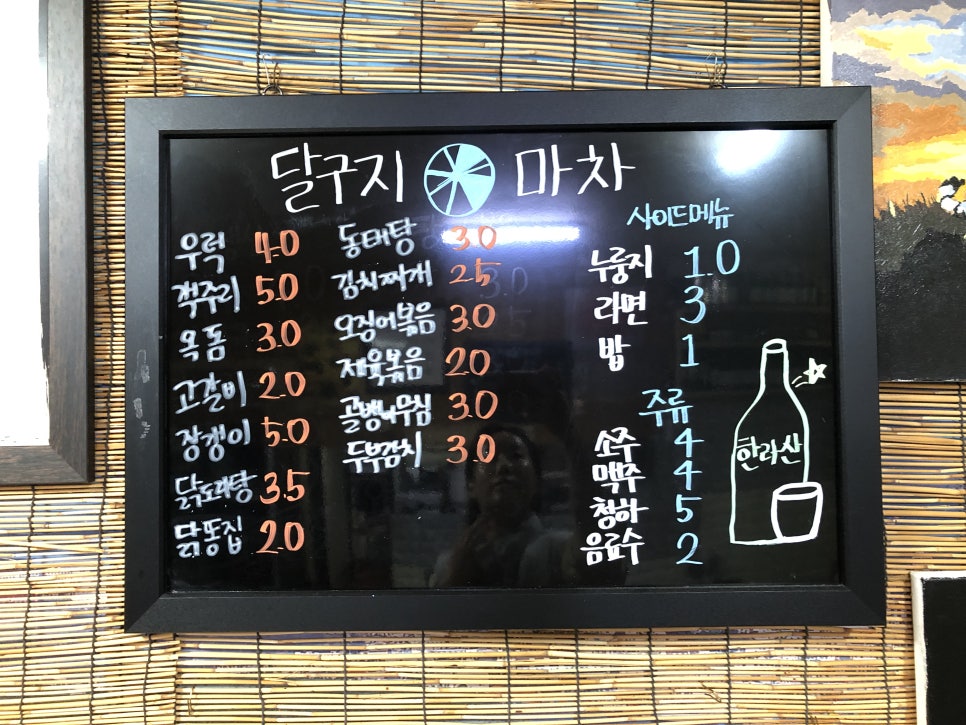 달구지 마차
우럭 4.0
객주리 5.0
옥돔 3.0
고갈비 2.0
장갱이 5.0
닭도리탕 3.5
닭똥집 2.0
동태탕 3.0
김치찌개 2.5
오징어볶음 3.0
제육볶음 2.0
골뱅이무침 3.0
두부김치 3.0
사이드메뉴
누룽지 1.0
라면 3
밥 1
주류
소주 4
맥주 4
청하 5
음료수 2
한라산